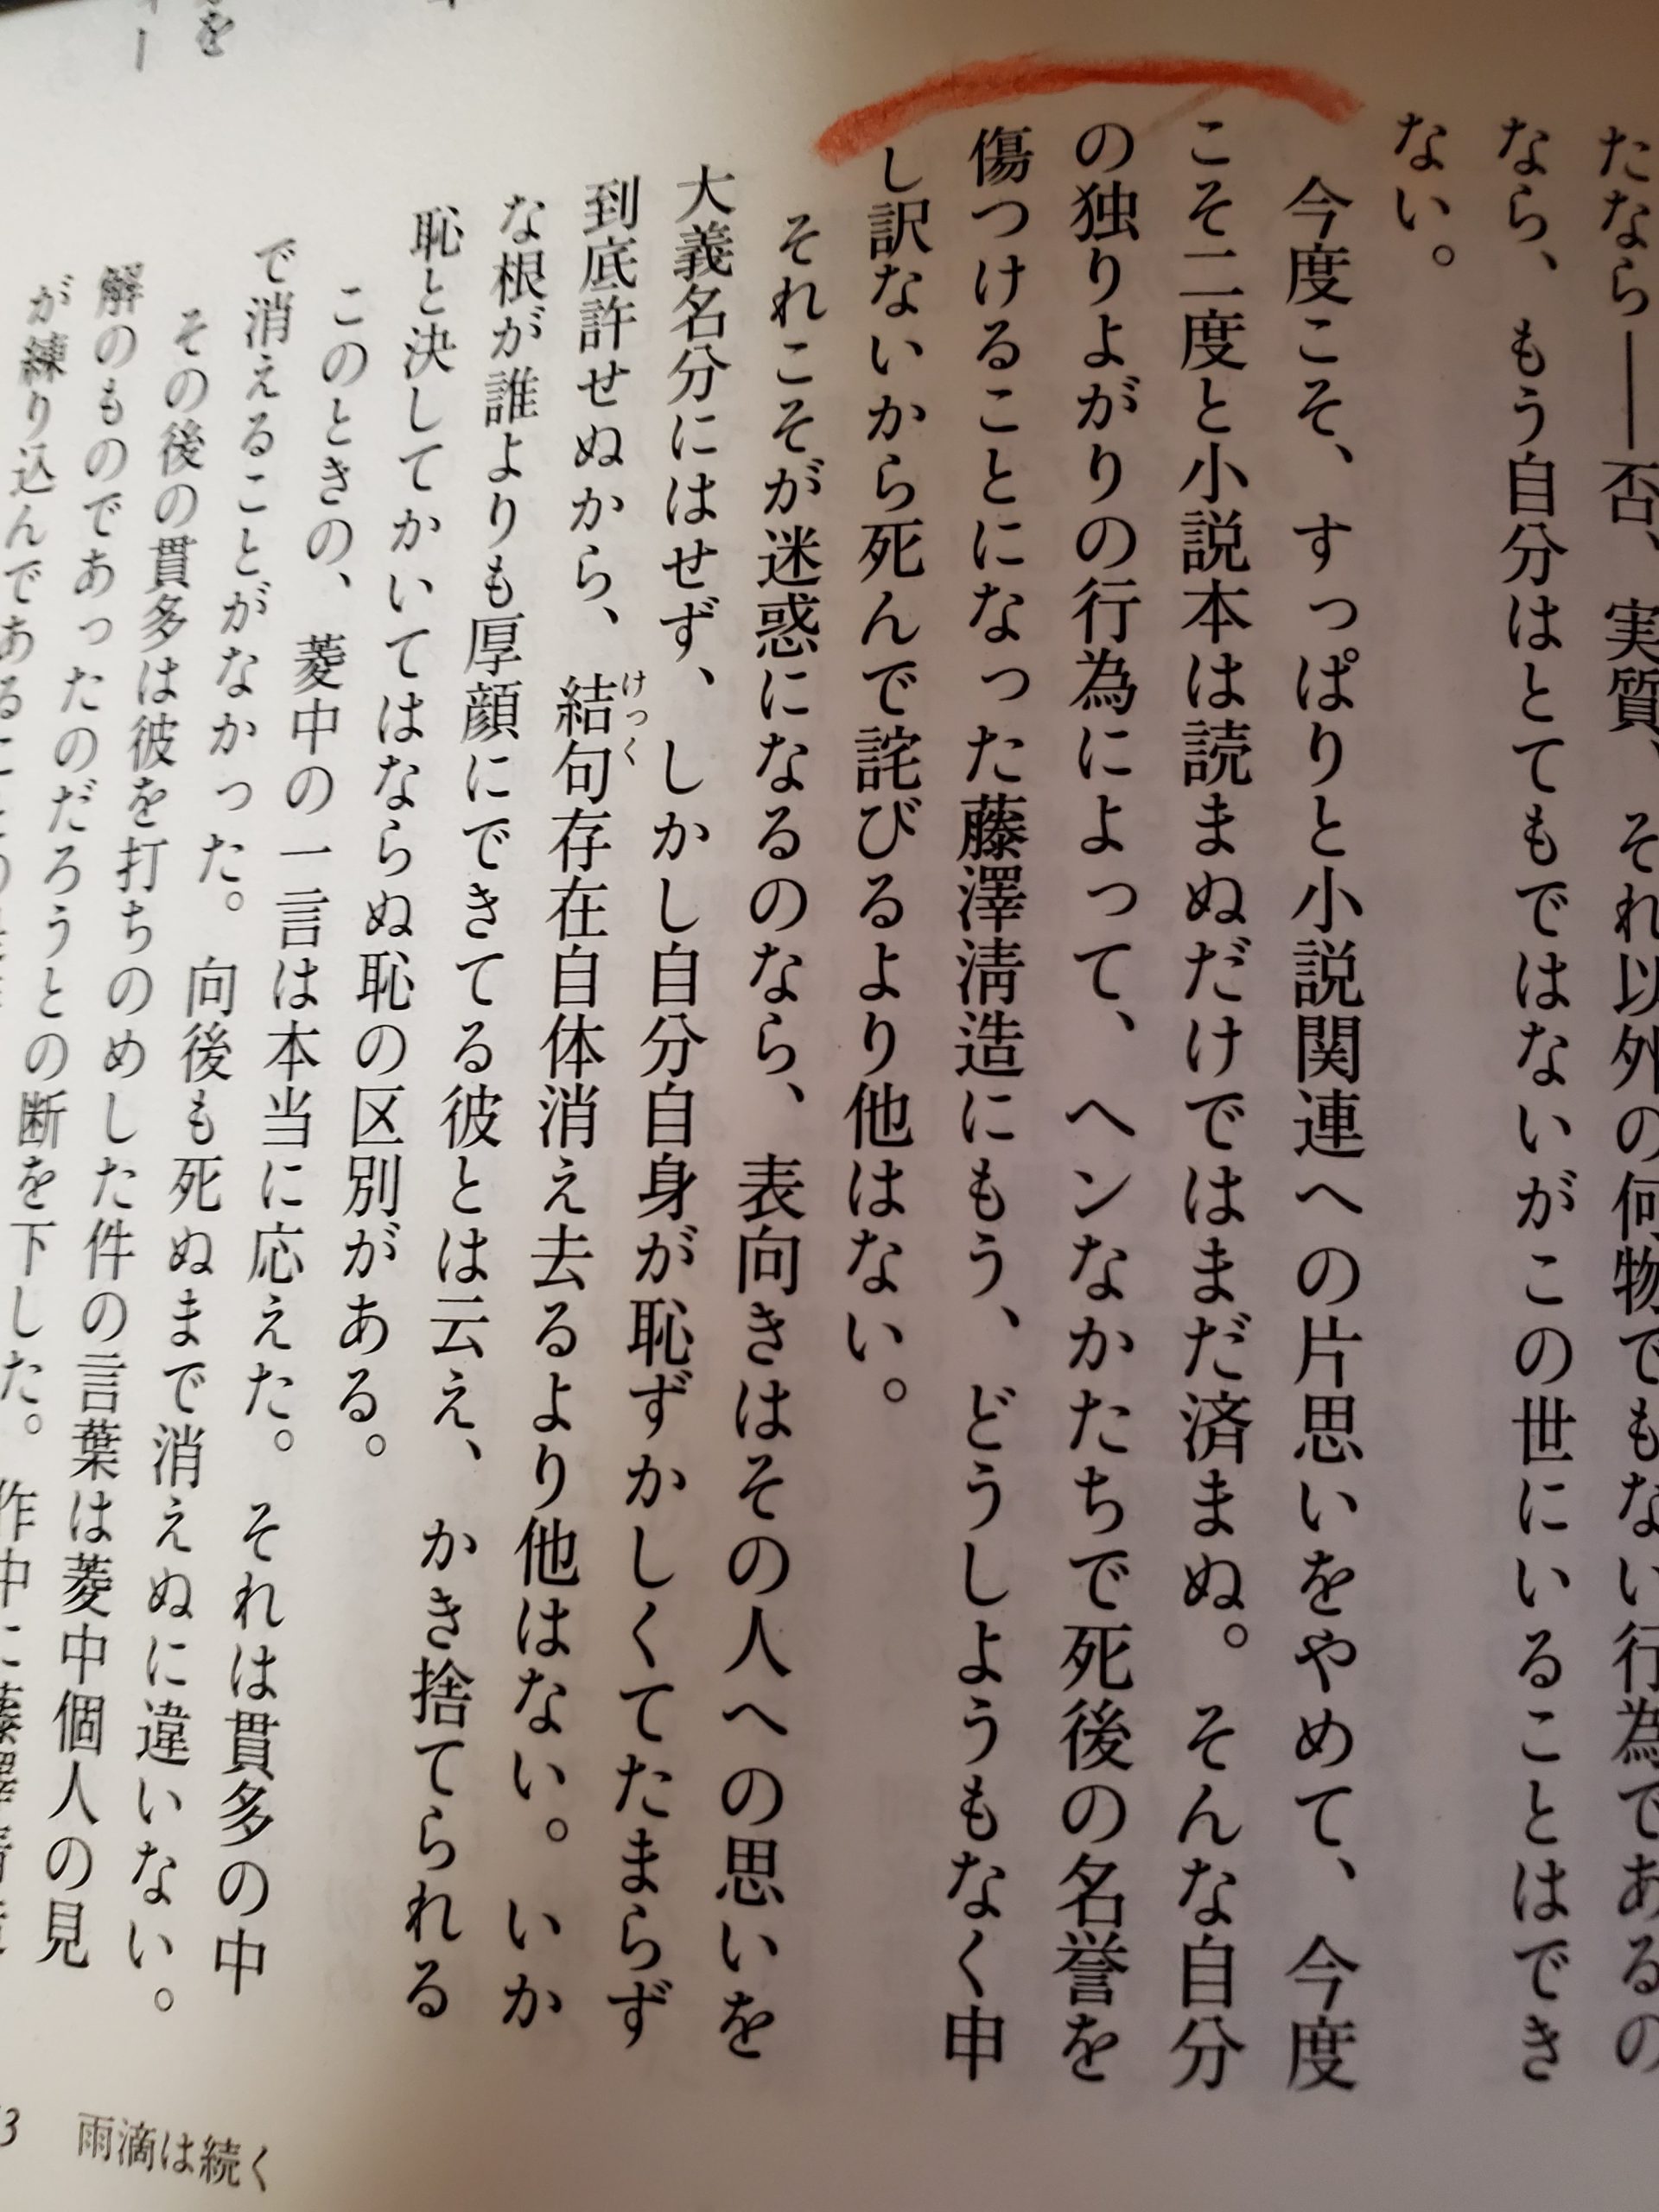 たなら――否、実質、それ以外の何物でもない行為であるの
なら、もう自分はとてもではないがこの世にいることはでき
ない。
今度こそ、すっぱりと小説関連への片思いをやめて、今度
こそ二度と小説本は読まぬだけではまだ済まぬ。そんな自分
の独りよがりの行為によって、ヘンなかたちで死後の名誉を
傷つけることになった藤澤淸造にもう、どうしようもなく申
し訳ないから死んで詫びるより他はない。
それこそが迷惑になるのなら、表向きはその人への思いを
大義名分にはせず、しかし自分自身が恥ずかしくてたまらず
到底許せぬから、結句存在自体消え去るより他はない。いか
けっく
な根が誰よりも厚顔にできてる彼とは云え、かき捨てられる
恥と決してかいてはならぬ恥の区別がある。
このときの、菱中の一言は本当に応えた。それは貫多の中
で消えることがなかった。向後も死ぬまで消えぬに違いない。
その後の貫多は彼を打ちのめした件の言葉は菱中個人の見
解のものであったのだろうとの断を下した。作中に藤澤淸造
が練り込んであることの
雨滴は続く